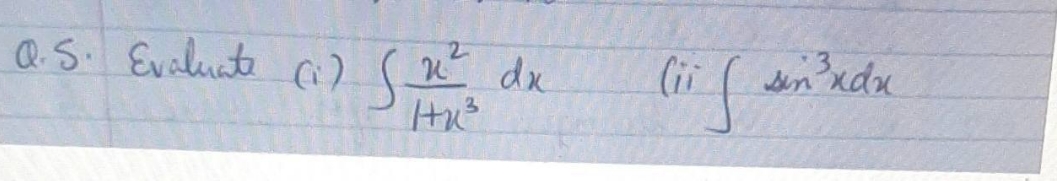 Q.5. Evaluate (i) ∫ x²/1+x³ dx (ii ∫ sin³xdx